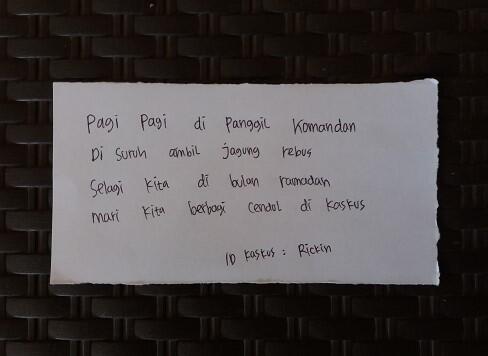 Pagi Pagi di Panggil Komandan
Di suruh ambil jagung rebus
Selagi kita di bulan ramadan
mari kita berbagi cendol di kaskus
ID kaskus : Rickin